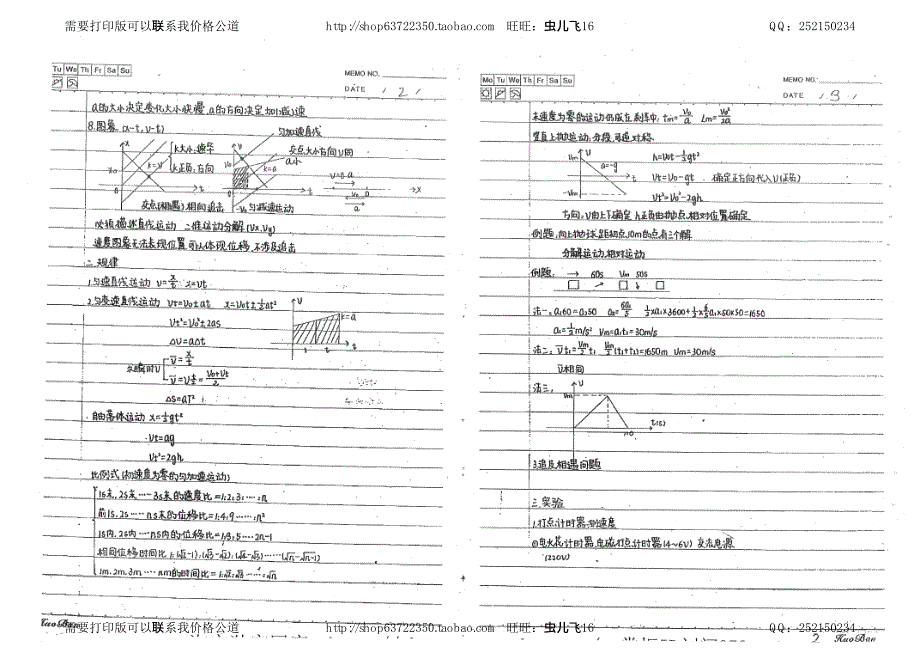 需要打印版可以联系我价格公道 http://shop63722350.taobao.com 旺旺：虫儿飞16 QQ：252150234
Tu We Th Fr Sa Su
MEMO NO.
DATE / 2 /
a的大小决定变化大小快慢,a的方向决定加(减)速
8.图象 (x-t, v-t)
匀加速直线
k大小:速率
k正负:方向
交点(相遇)相向追击
匀减速运动
只能描述直线运动 二维运动分解(Vx,Vy)
速度图象无法表现位置,可以体现位移,不涉及追击
二.规律
1.匀速直线运动 v=x/t x=vt
2.匀变速直线运动 Vt=V0±at x=V0t±½at²
Vt²=V0²±2as
k=a
ΔV=aΔt
求瞬时V
V̄=x/t
V̄=V t/2=(V0+Vt)/2
ΔS=aT²
自由落体运动 x=½gt²
Vt²=2gh
比例式(初速度为零的匀加速运动)
1s末,2s末……3s末的速度比=1:2:3:……:n
前1s.2s……ns末的位移比=1:4:9……:n²
1s内,2s内……ns内的位移比=1:3:5……2n-1
相同位移时间比1:(√2-1):(√3-√2):(√4-√3)……(√n-√n-1)
1m.2m.3m……nm的时间比=1:√2:√3……:√n
Mo Tu We Th Fr Sa Su
MEMO NO.
DATE / 3 /
末速度为零的运动仍成立.刹车中, tm=V0/a Lm=V0²/2a
竖直上抛运动,分段,可逆,对称.
a=-g
h=V0t-½gt²
Vt=V0-gt 确定正方向代入V(正负)
Vt²=V0²-2gh
方向,V由上下确定 h正负由抛点,相对位置确定
例题,向上抛球,距初点10m的点有三个解
分解运动,相对运动
例题. → 60s Vm 50s
a1=½m/s² Vm=a1t1=30m/s
法二. V̄t1=Vm/2 t1 Vm/2(t1+t2)=1650m Vm=30m/s
V̄相同
法三.
Vm
t(s)
3.追及相遇问题
三.实验
1.打点计时器测速度
①电火花计时器,电磁打点计时器(4~6V) 交流电源
(220V)
2
HuoBan
需要打印版可以联系我价格公道 http://shop63722350.taobao.com 旺旺：虫儿飞16 QQ：252150234